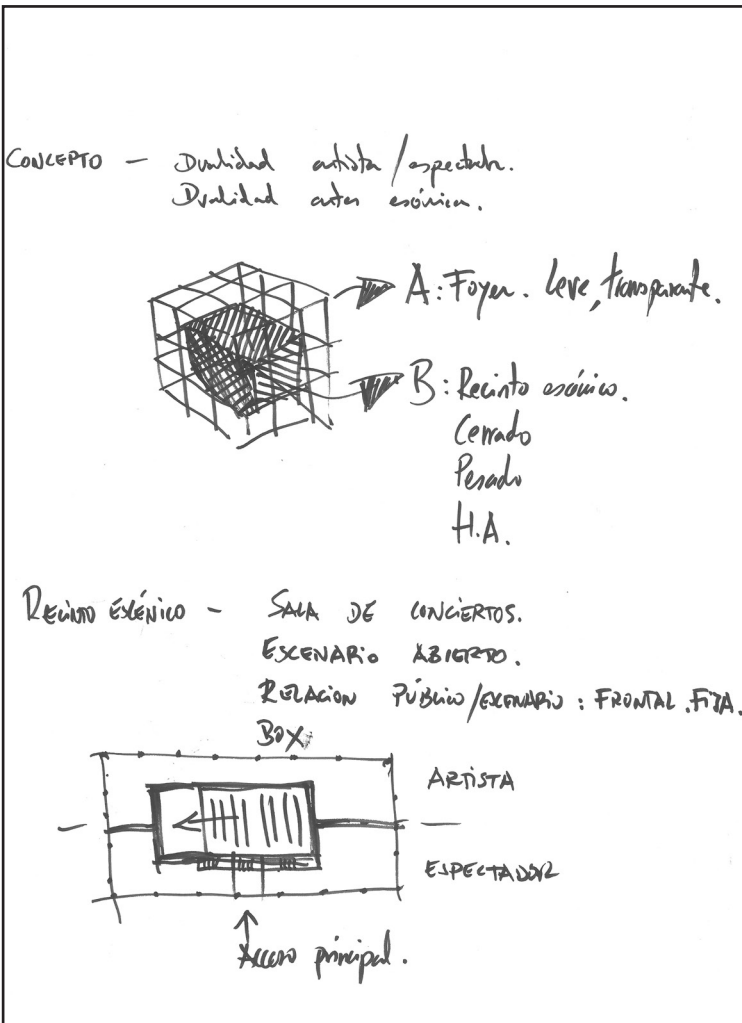 CONCEPTO — Dualidad artista / espectador.
Dualidad artes escénica.
A: Foyer. Leve, transparente.
B: Recinto escénico.
Cerrado
Pesado
H.A.
RECINTO ESCÉNICO - SALA DE CONCIERTOS.
ESCENARIO ABIERTO.
RELACION PÚBLICO/ESCENARIO: FRONTAL. FIJA.
BOX
ARTISTA
ESPECTADOR
Acceso principal.